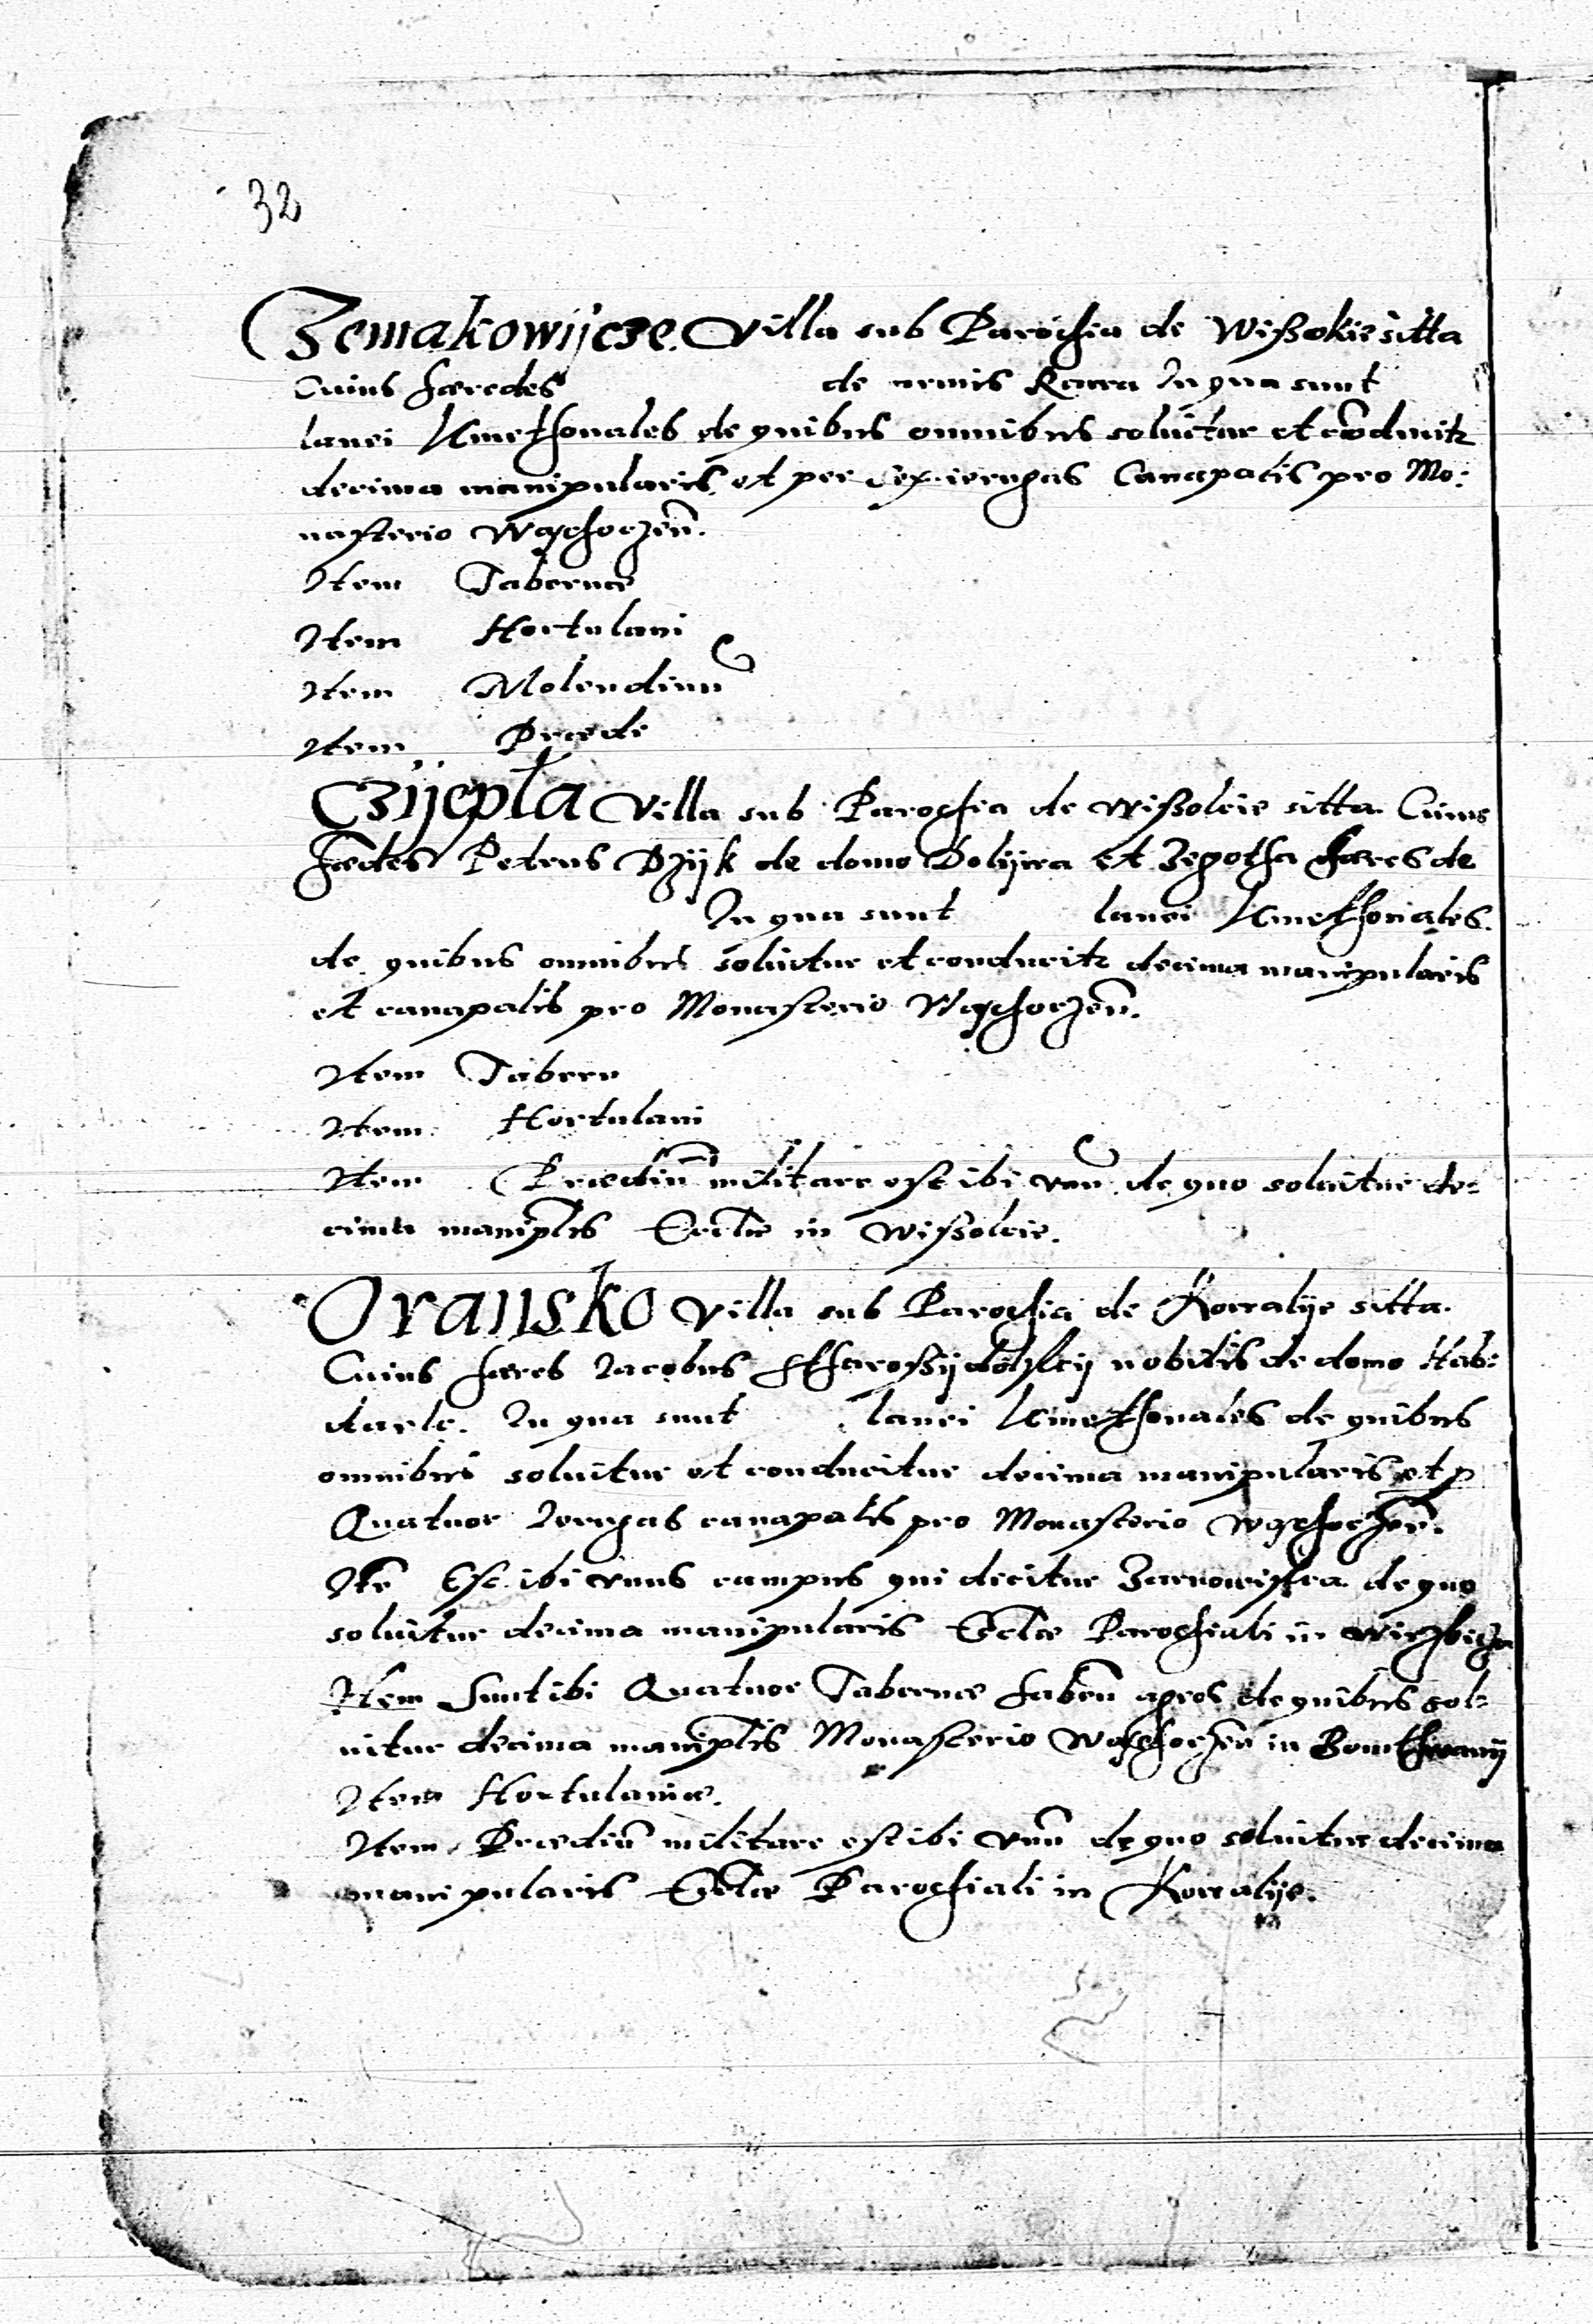 32
Zemakowijcze. Villa sub Parochia de Wißokie sitta
Cuius hæredes de armis Rawa In qua sunt
lanei Kmethonales de quibus omnibus soluitur et cōducitr
decima manipularis et per sex iergas Canapalis pro Mo:
nasterio Wąchoczeñ.
Item Tabernæ
Item Hortulani
Item Molendinū
Item Præde
Czijepla Villa sub Parochia de Wißokie sitta. Cuius
hædes Petrus Dzijk de domo Dolijwa et Zegotha hæres de
In qua sunt lanei Kmethonales.
de quibus omnibus soluitur et conducitr decima manipularis
et canapalis pro Monasterio Wąchoczeñ.
Item Tabern
Item Hortulani
Item Prædiū militare est ibi vnū de quo soluitur de=
cima maniplis Ecclæ in Wißokie.
Oransko Villa sub Parochia de Kowalije sitta.
Cuius hæres Iacobus nobilis de domo Hab:
dank. In qua sunt lanei Kmethonales de quibus
omnibus soluitur et conducitur decima manipularis et p
Quatuor iergas canapalis pro Monasterio Wąchoczeñ.
Itē Est ibi vnus campus qui dicitur de quo
soluitur decima manipularis Ecclæ Parochiali in Wierzbicza
Item Sunt ibi Quatuor Tabernæ habeñ agros de quibus sol=
uitur decima maniplis Monasterio Wąchoczeñ in
Item Hortulaniæ.
Item Prædiū militare est ibi vnū de quo soluitur decima
manipularis Ecclæ Parochiali in Kowalije.